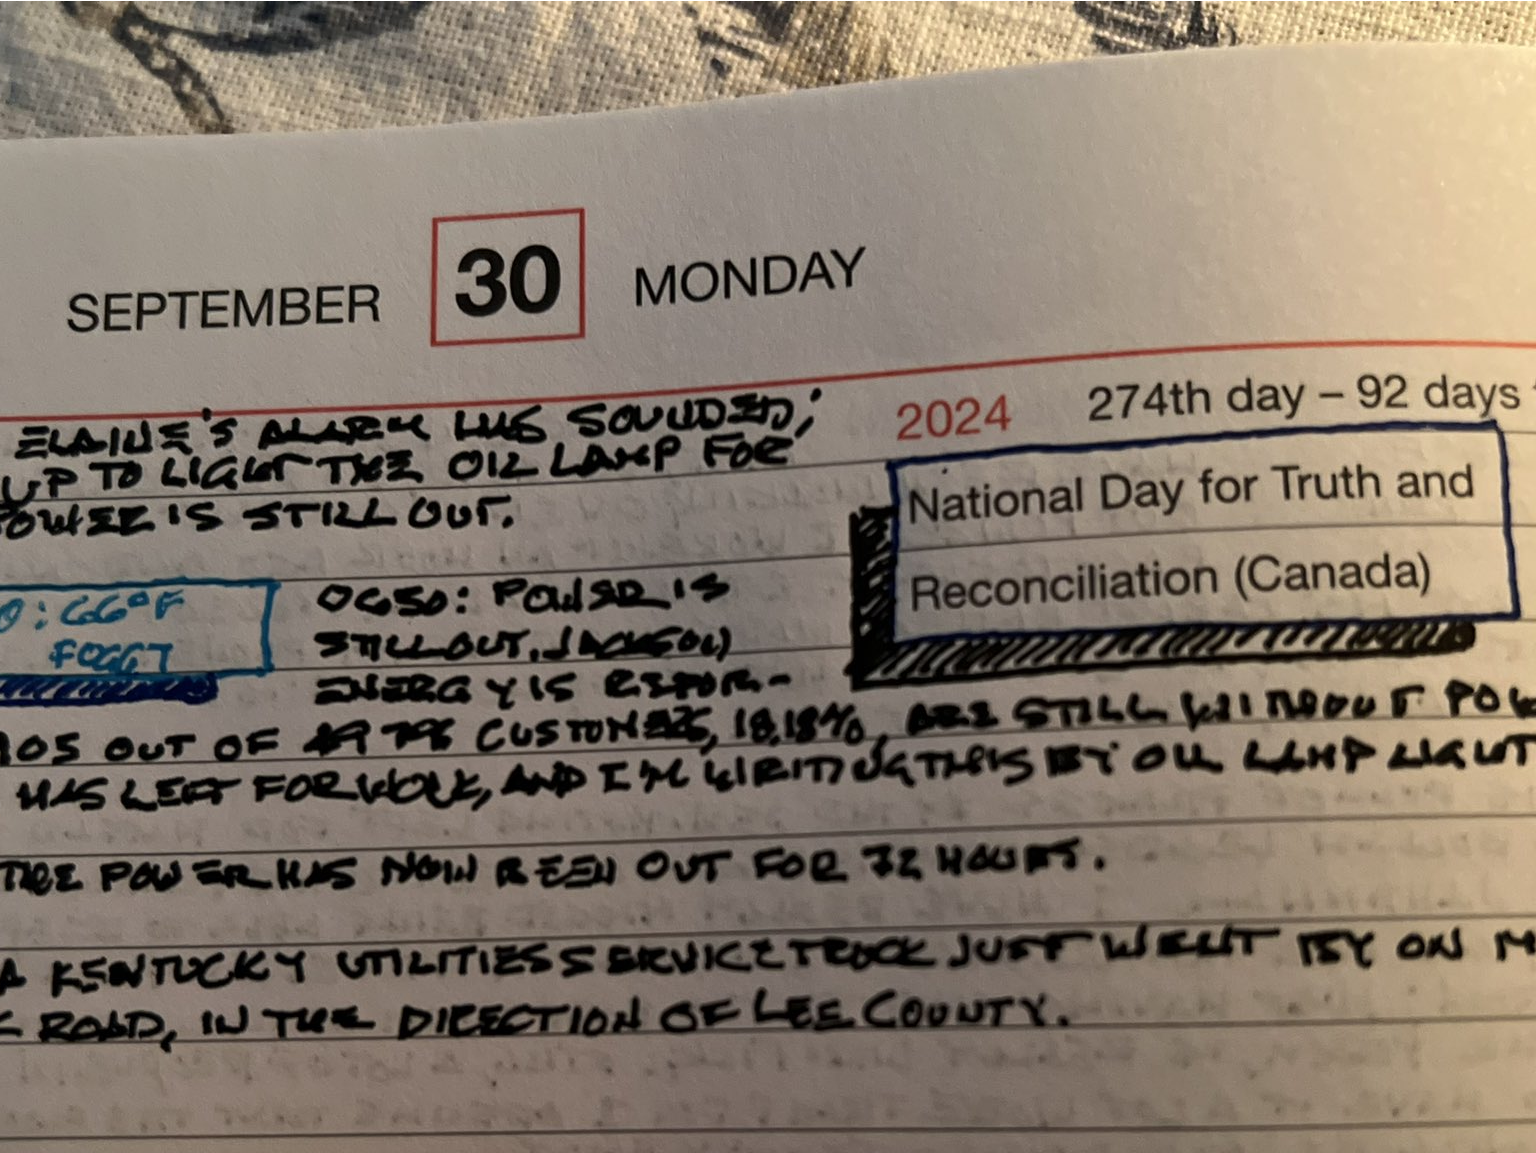 SEPTEMBER 30 MONDAY
2024 274th day – 92 days
National Day for Truth and
Reconciliation (Canada)
ELAINE'S ALARM HAS SOUNDED;
UP TO LIGHT THE OIL LAMP FOR
POWER IS STILL OUT.
: 66°F
FOGGY
0650: POWER IS
STILL OUT. JACKSON
ENERGY IS REPOR-
905 OUT OF CUSTOMERS, 18.18%, ARE STILL WITHOUT POW
HAS LEFT FOR WORK, AND I'M WRITING THIS BY OIL LAMP LIGHT
THE POWER HAS NOW BEEN OUT FOR 72 HOURS.
A KENTUCKY UTILITIES SERVICE TRUCK JUST WENT BY ON M
ROAD, IN THE DIRECTION OF LEE COUNTY.